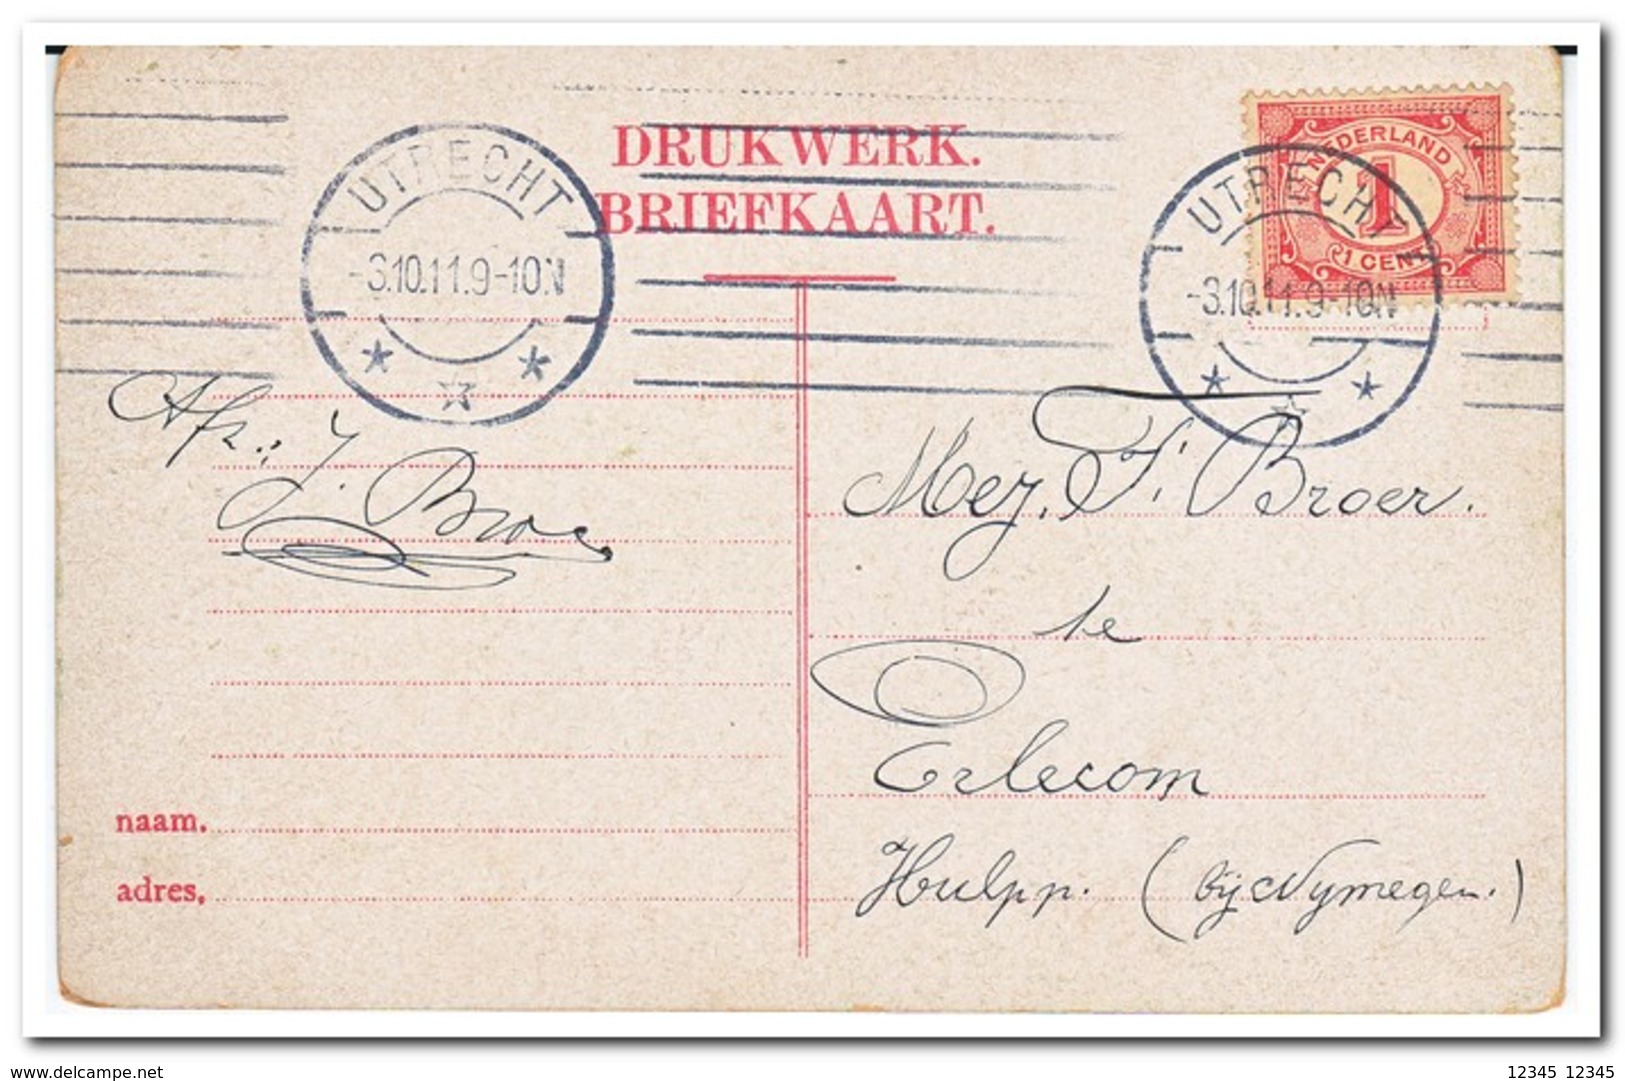 DRUKWERK.
BRIEFKAART.
UTRECHT
-3.10.11.9-10N
UTRECHT
-3.10.11.9-10N
NEDERLAND
1
1 CENT
Afz.: J. Broer
Mej. F. Broer.
te
Erlecom
Hulpp. (bij Nymegen.)
naam.
adres.
www.delcampe.net
12345 12345